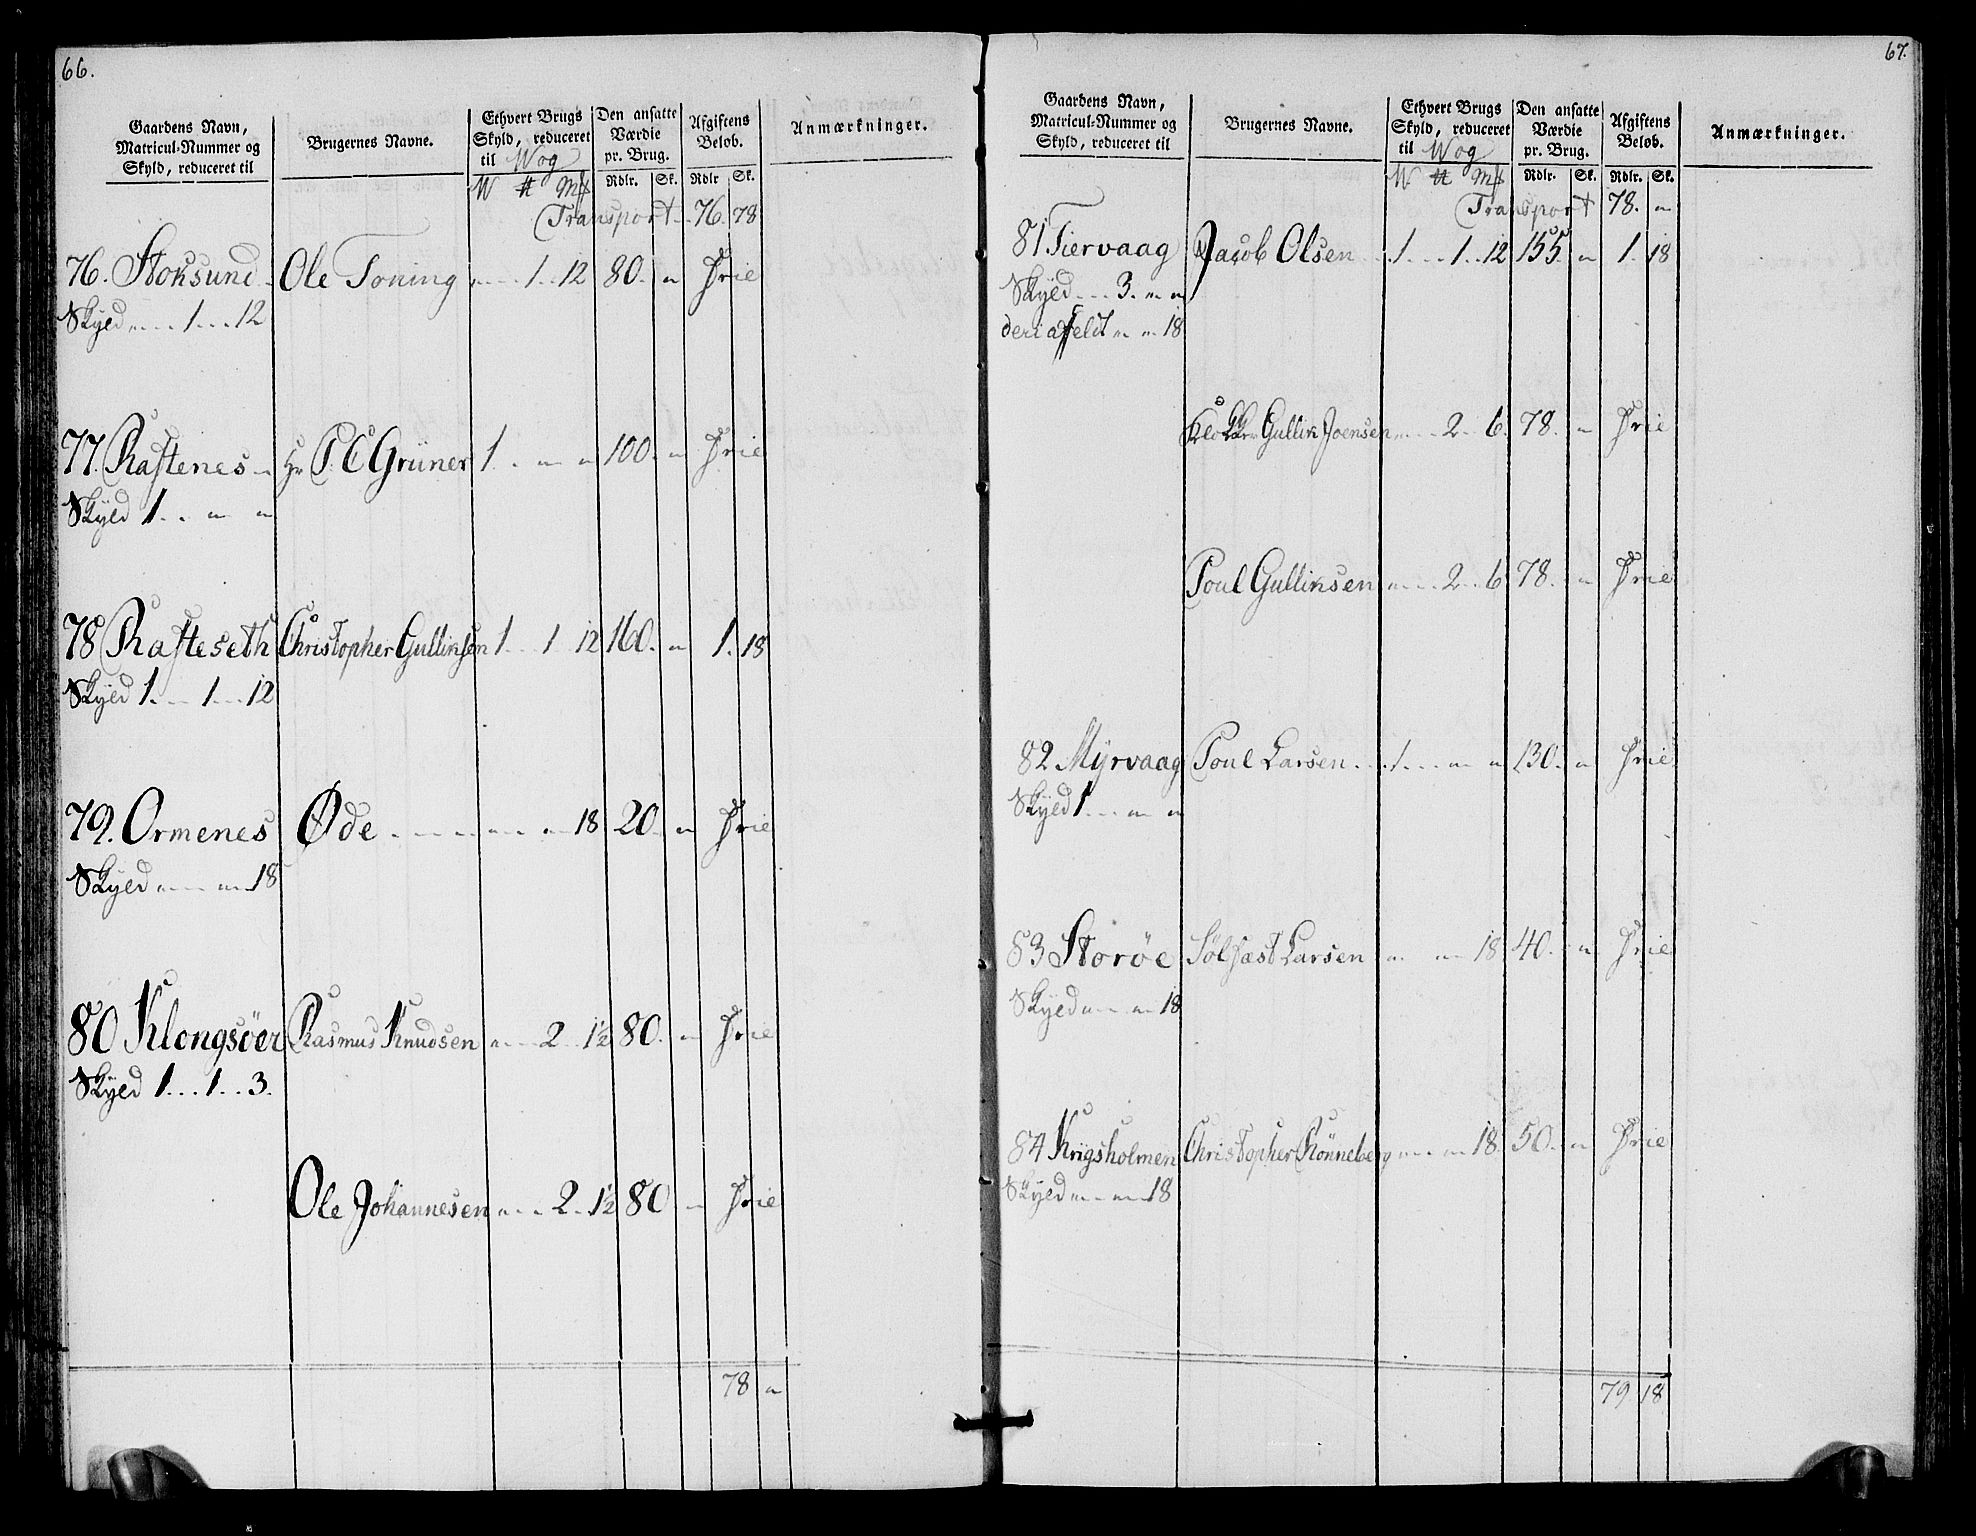 66.
Gaardens Navn,
Matricul-Nummer og
Skyld, reduceret til
Brugernes Navne.
Ethvert Brugs
Skyld, reduceret
til Wog
W ℔ Mk
Den ansatte
Værdie
pr. Brug.
Rdlr. Sk.
Afgiftens
Beløb.
Rdlr Sk.
Anmærkninger.
Transport 76. 78
76. Stoksund Ole Toning 1 12 80. " Frie
Skyld 1 12
77. Raftenes Hr P. C. Grüner 1 " " 100 " Frie
Skyld 1 " "
78 Rafteseth Christopher Gullinsen 1 1 12 160. " 1. 18
Skyld 1 1 12
79. Ormenes Øde " " 18 20 " Frie
Skyld " " 18
80 Klongsöer Rasmus Knudsen " 2 1½ 80. " Frie
Skyld 1 1 3.
Ole Johannesen " 2 1½ 80 " Frie
78 "
67.
Gaardens Navn,
Matricul-Nummer og
Skyld, reduceret til
Brugernes Navne.
Ethvert Brugs
Skyld, reduceret
til Wog
W. ℔ Mk
Den ansatte
Værdie
pr. Brug.
Rdlr. Sk.
Afgiftens
Beløb.
Rdlr. Sk.
Anmærkninger.
Transport 78. "
81 Tiervaag Jacob Olsen 1 1 12 155 " 1. 18
Skyld 3. " "
deri affeldt " " 18
Klokker Gullik Joensen " 2 6 78. " Frie
Poul Gulliksen " 2 6 78. " Frie
82 Myrvaag Poul Larsen 1 " " 130. " Frie
Skyld 1 " "
83 Storöe Sölfæst Larsen " " 18 40. " Frie
Skyld " " 18
84 Krigsholmen Christopher Rönneberg " " 18 50. " Frie
Skyld " " 18
79 18